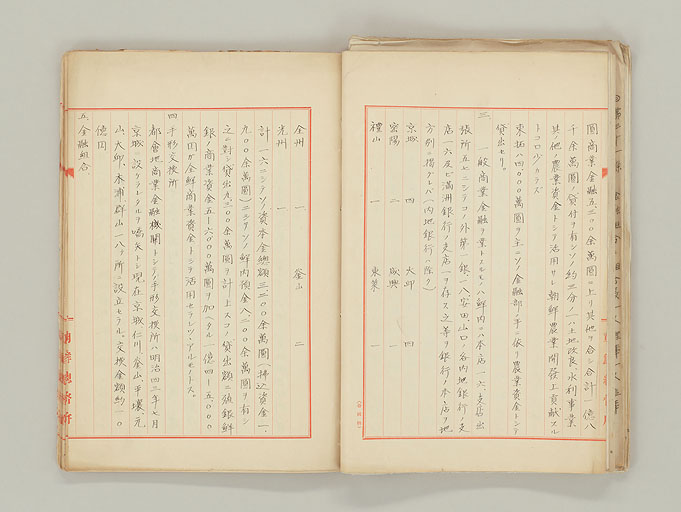 圓商業金融五三〇〇余萬圓ニ上リ其他ヲ合シ合計一億八
千余萬圓ノ貸付ヲ有シソノ約三分ノ一ハ土地改良、水利事業
其他ノ農業資金トシテ活用サレ朝鮮農業開發上貢献スル
トコロ少カラズ
東拓ハ四〇〇〇萬圓ヲ主ニソノ金融部ノ手ニ依リ農業資金トシテ
貸出セリ。
三 一般商業金融ヲ業トスルモノハ鮮内ニハ本店一六、支店出
張所五七ニシテコノ外第一銀、一八、安田、山口ノ各内地銀行ノ支
店一六及ビ滿洲銀行ノ支店一ヲ存ス之等ノ銀行ノ本店ヲ地
方別ニ揚グレバ(内地銀行ハ除ク)
京城 四 大邱 四
密陽 二 咸興 二
禮山 一 東萊 一
全州 一 釜山 二
光州 一
計 一六ニシテソノ資本金總額三二〇〇余萬圓(拂込資金一、
九〇〇余萬圓)ニシテソノ鮮内預金八二〇〇余萬圓ヲ有シ
之ニ對シ貸出九三〇〇余萬圓ヲ計上スコノ貸出額ニ殖銀鮮
銀ノ商業資金五一六〇〇〇萬圓ヲ加ヘタル一億四一五、〇〇〇
萬圓ガ全鮮商業資金トシテ活用セラレツヽアルモノトス。
四 手形交換所
都會地商業金融機關トシテ手形交換所ハ明治四三年七月
京城ニ設ケラレタルヲ嚆矢トシ現在京城、仁川、釜山、平壤、元
山、大邱、木浦、群山一八ヶ所ニ設立セラル。交換金額約一〇
億円
五 金融組合
朝鮮總督府